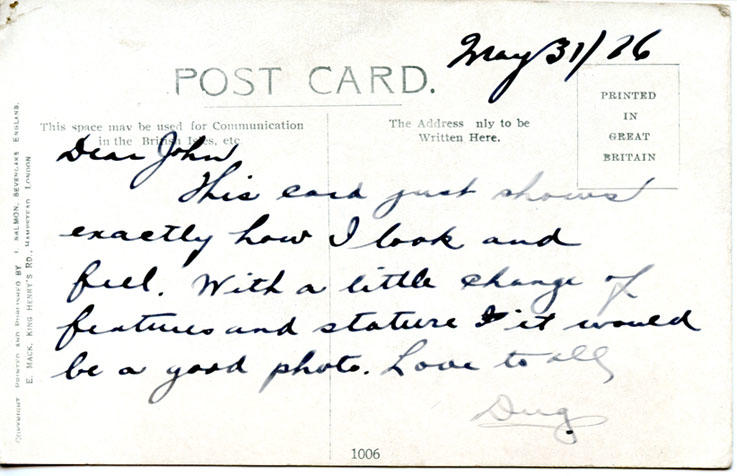 May 31/26
POST CARD.
PRINTED
IN
GREAT
BRITAIN
This space may be used for Communication
in the British Isles, etc
The Address nly to be
Written Here.
Dear John,
This card just shows
exactly how I look and
feel. With a little change of
features and stature it would
be a good photo. Love to all
Dug.
COPYRIGHT PRINTED AND PUBLISHED BY J. SALMON, SEVENOAKS ENGLAND.
E. MACK, KING HENRY'S RD., HAMPSTEAD LONDON
1006